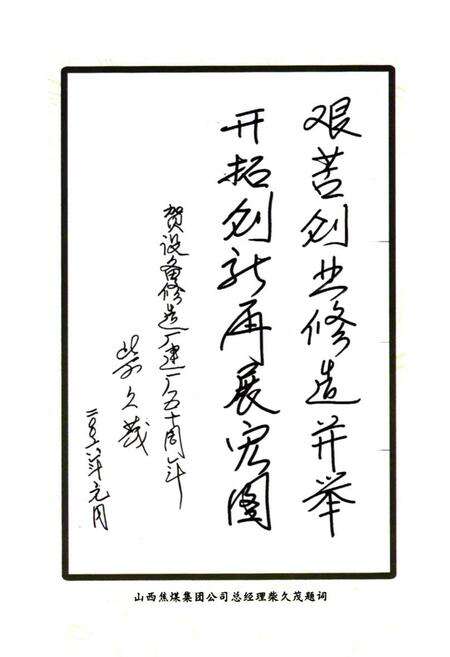 艰苦创业修造并举
开拓创新再展宏图
贺设备修造厂建厂五十周年
柴久茂
二〇〇八年元月
山西焦煤集团公司总经理柴久茂题词